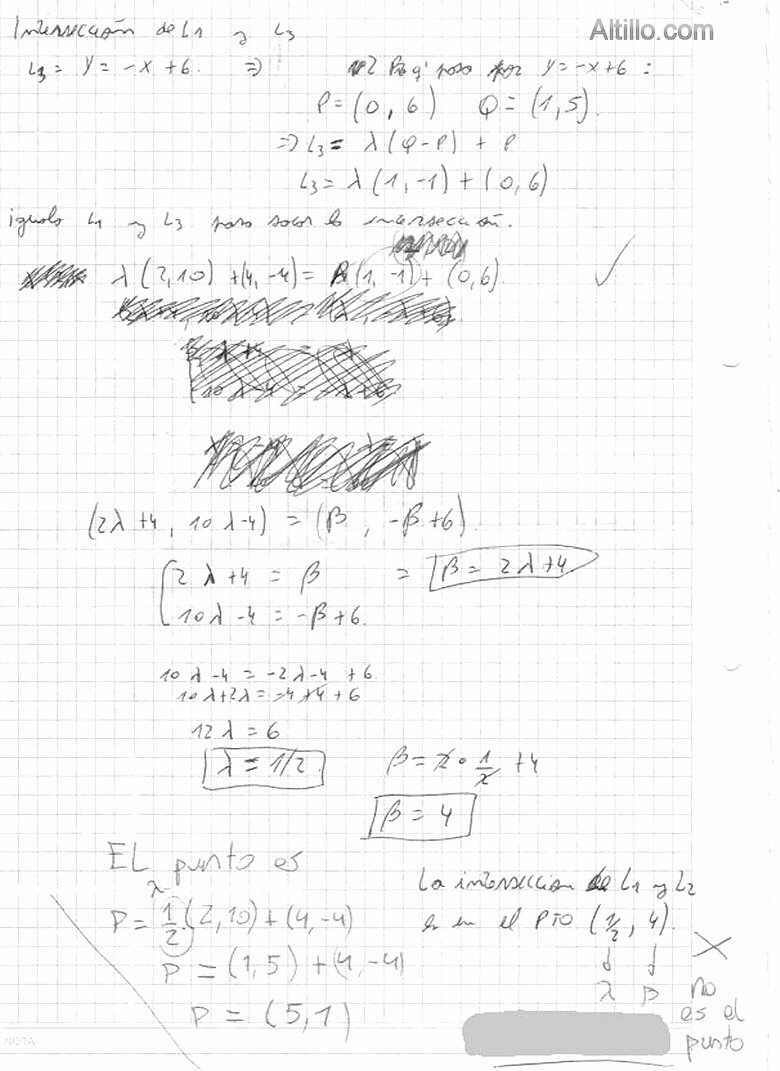 Altillo.com
Intersección de L1 y L3
L3 = y = -x + 6. ⇒ 2 Ptos q' pasa por y = -x + 6 :
P = (0, 6) Q = (1, 5).
⇒ L3 = λ (Q - P) + P
L3 = λ (1, -1) + (0, 6)
igualo L1 y L3 para sacar la intersección.
λ (2, 10) + (4, -4) = β (1, -1) + (0, 6). ✓
(2λ + 4, 10λ - 4) = (β, -β + 6).
2λ + 4 = β = β = 2λ + 4
10λ - 4 = -β + 6.
10λ - 4 = -2λ - 4 + 6
10λ + 2λ = -4 + 4 + 6
12λ = 6
λ = 1/2 β = 2 · 1/2 + 4
β = 4
EL punto es
λ
P = 1/2 (2, 10) + (4, -4)
P = (1, 5) + (4, -4)
P = (5, 1)
La interseccion de L1 y L2
es en el PTO (1/2, 4).
↓ ↓
λ β
X
no
es el
punto
NOTA